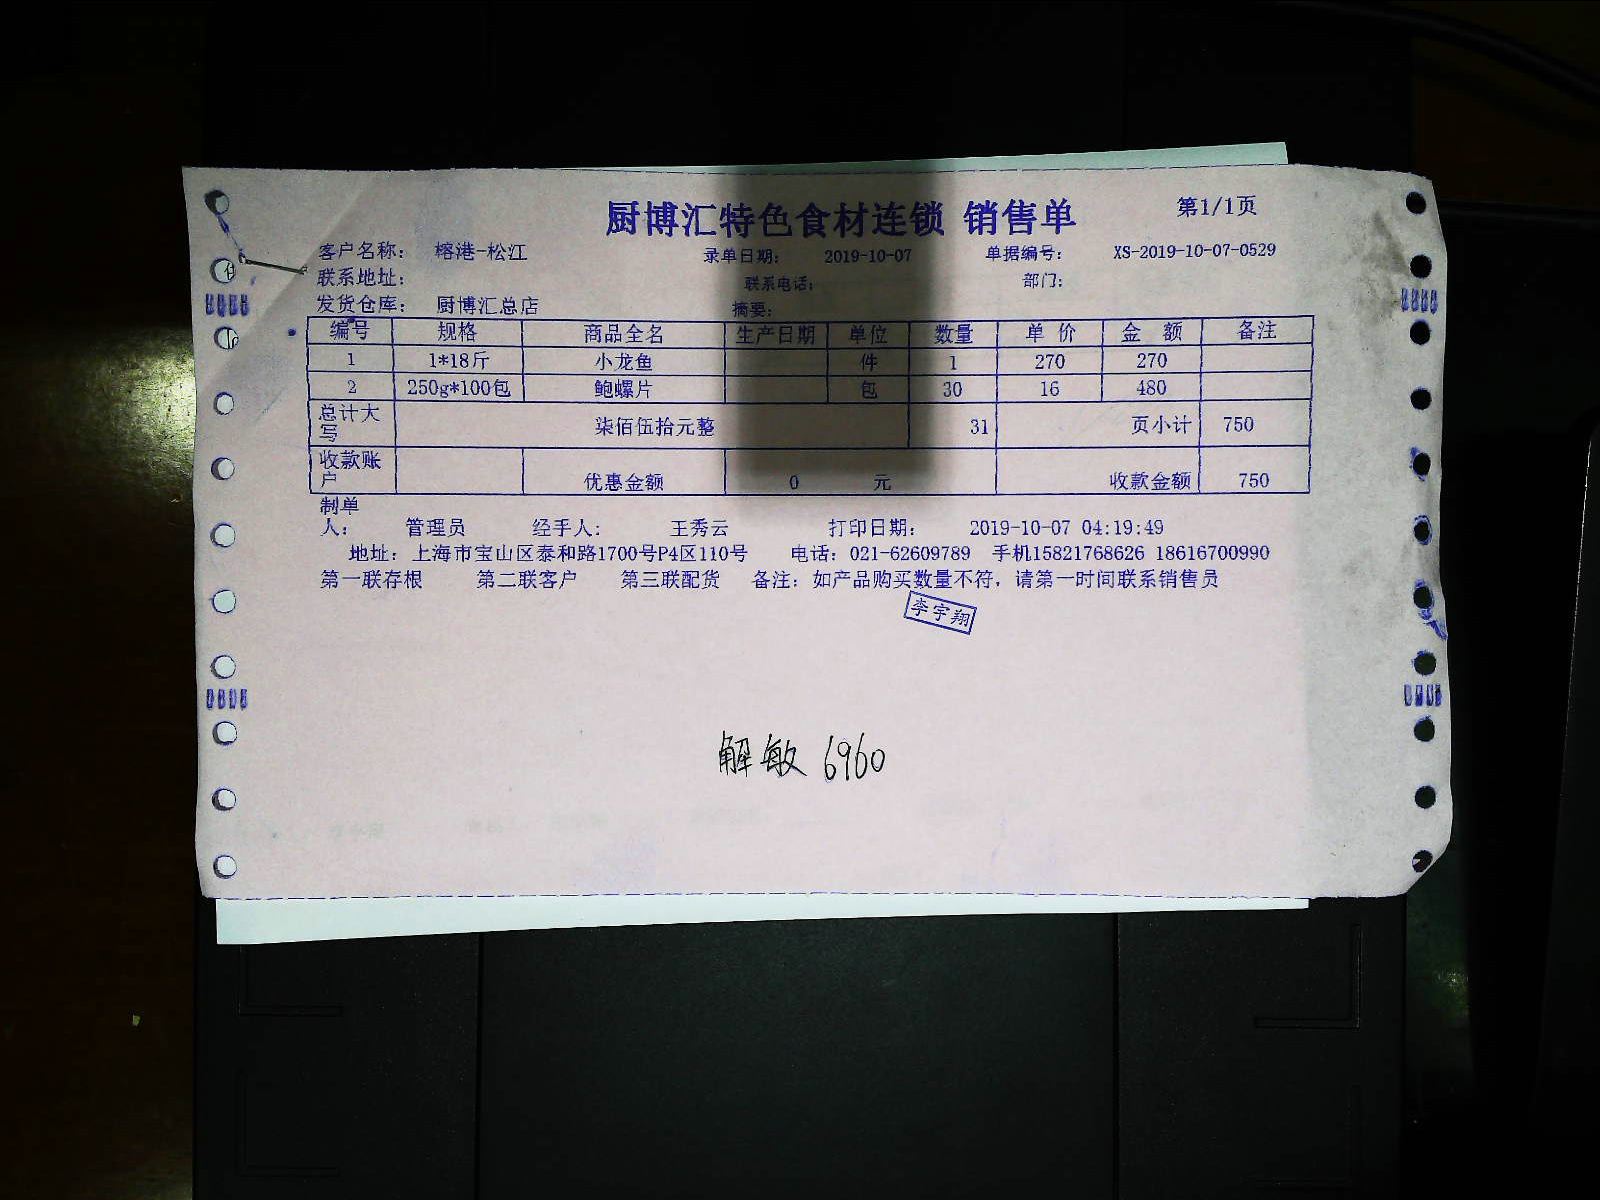 厨博汇特色食材连锁 销售单 第1/1页
客户名称： 榕港-松江 录单日期： 2019-10-07 单据编号： XS-2019-10-07-0529
联系地址： 联系电话： 部门：
发货仓库： 厨博汇总店 摘要：
编号 规格 商品全名 生产日期 单位 数量 单 价 金 额 备注
1 1*18斤 小龙鱼 件 1 270 270
2 250g*100包 鲍螺片 包 30 16 480
总计大写 柒佰伍拾元整 31 页小计 750
收款账户 优惠金额 0 元 收款金额 750
制单人： 管理员 经手人： 王秀云 打印日期： 2019-10-07 04:19:49
地址：上海市宝山区泰和路1700号P4区110号 电话：021-62609789 手机15821768626 18616700990
第一联存根 第二联客户 第三联配货 备注：如产品购买数量不符，请第一时间联系销售员
李宇翔
解敏 6960